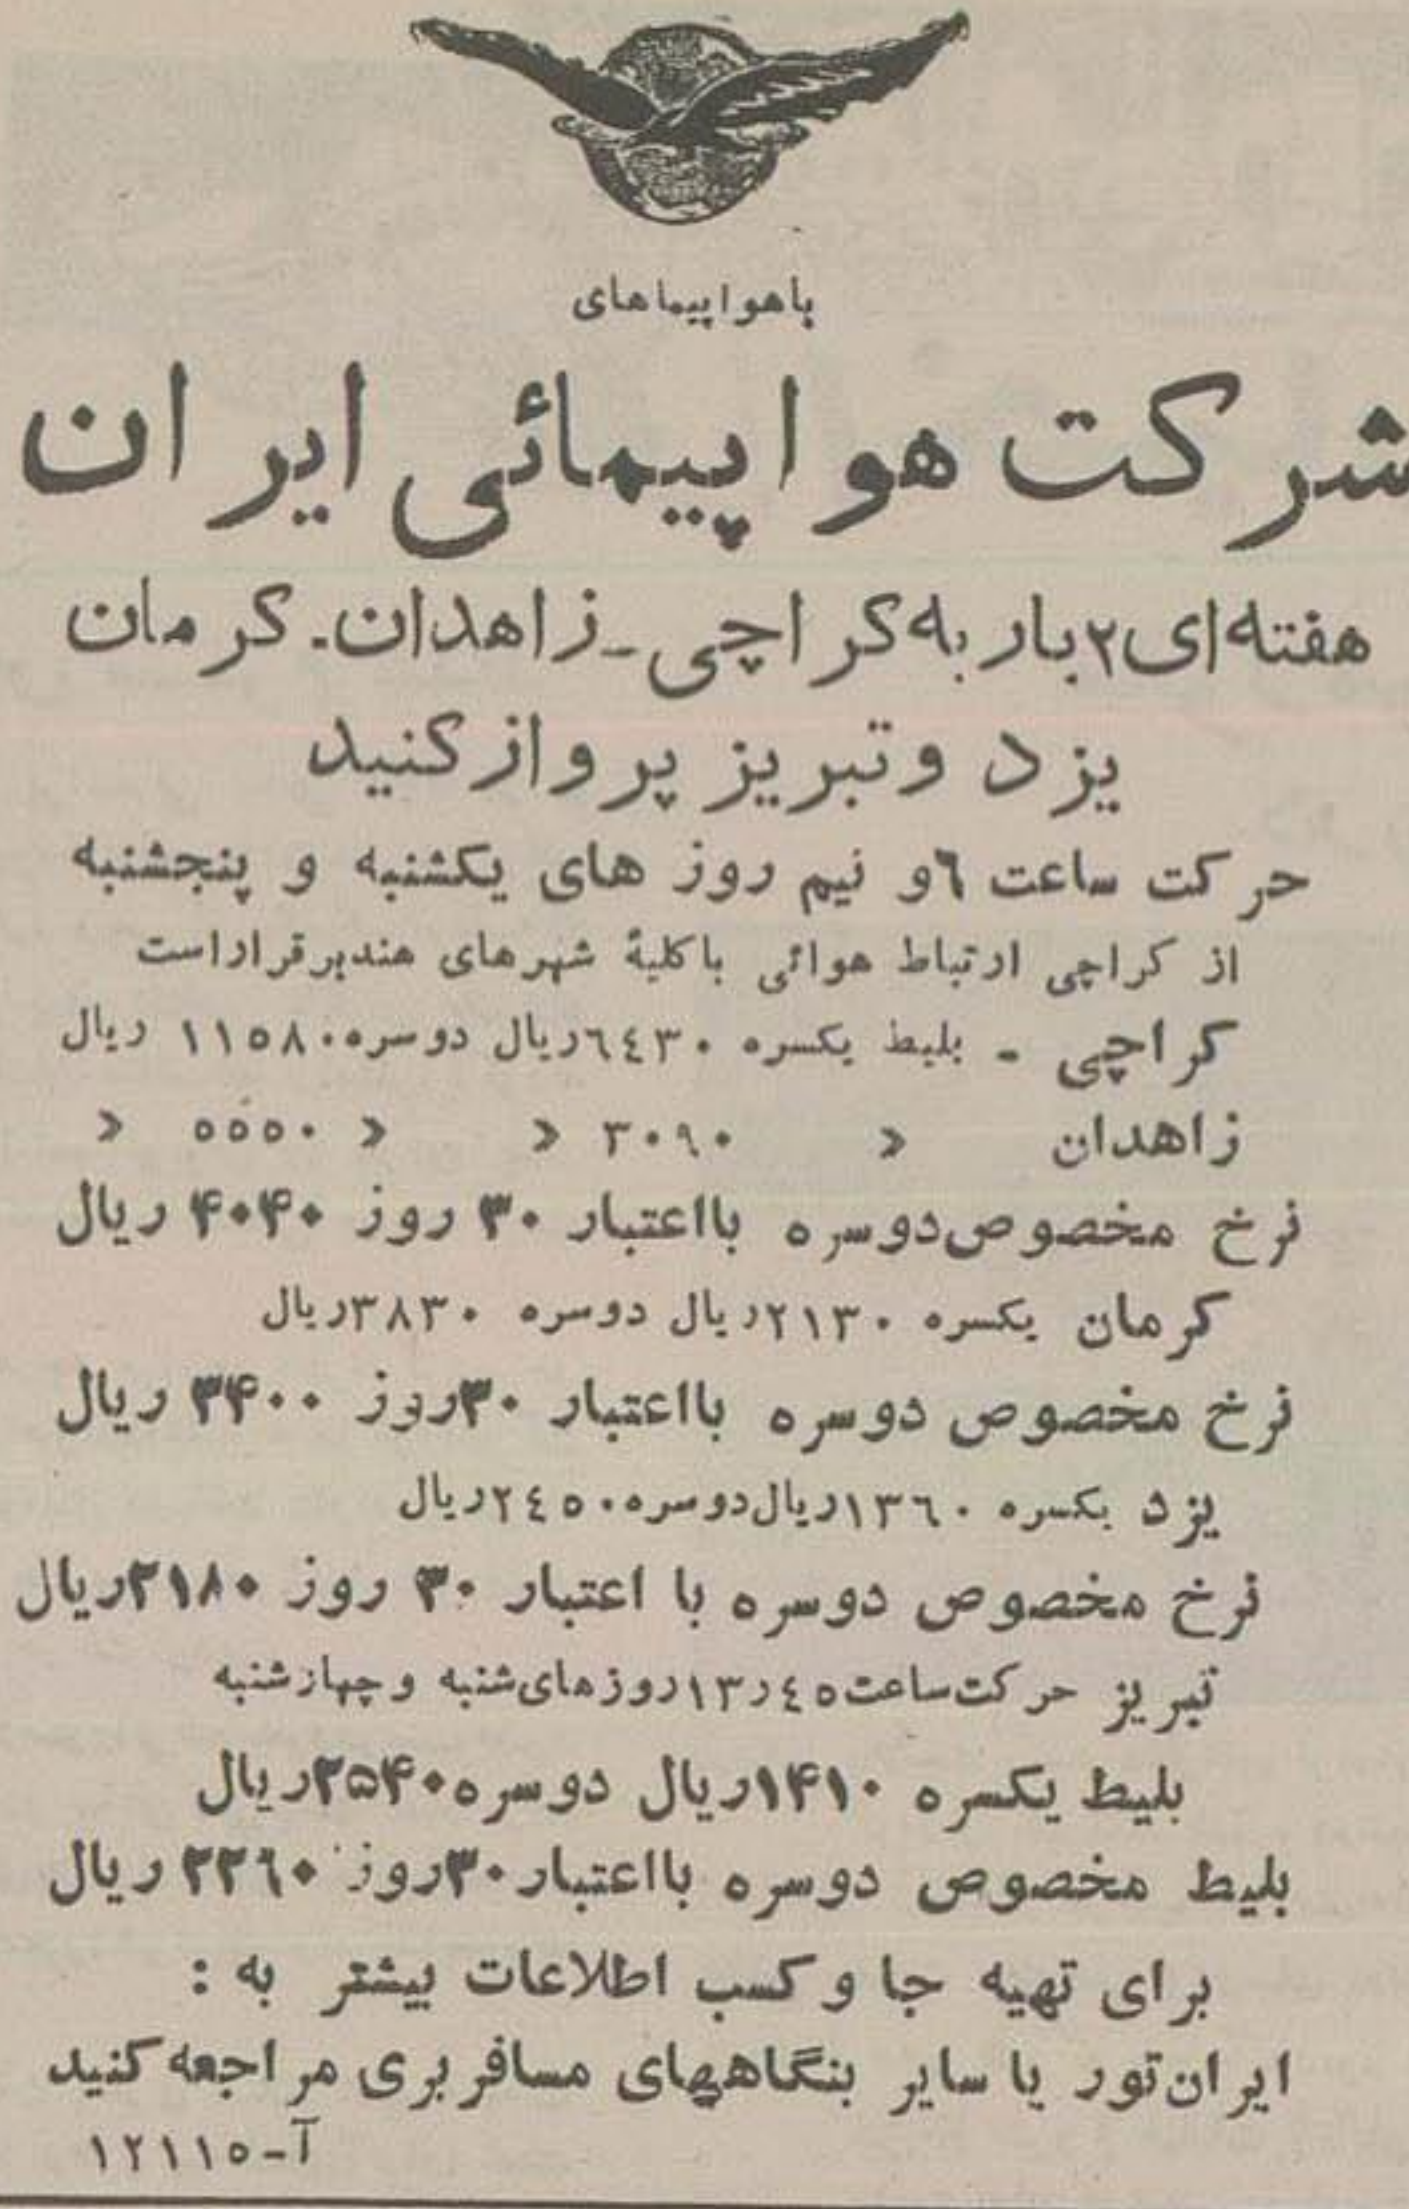 باهواپیماهای
شرکت هواپیمائی ایران
هفته‌ای ۲ بار به کراچی ـ زاهدان ـ کرمان
یزد و تبریز پرواز کنید
حرکت ساعت ٦ و نیم روز های یکشنبه و پنجشنبه
از کراچی ارتباط هوائی با کلیهٔ شهرهای هند برقرار است
کراچی ـ بلیط یکسره ٦٤٣٠ ریال دوسره ١١٥٨٠ ریال
زاهدان » ٣٠٩٠ » » ٥٥٥٠ »
نرخ مخصوص دوسره بااعتبار ۳۰ روز ۴۰۴۰ ریال
کرمان یکسره ٢١٣٠ ریال دوسره ٣٨٣٠ ریال
نرخ مخصوص دوسره بااعتبار ۳۰ روز ۳۴۰۰ ریال
یزد یکسره ١٣٦٠ ریال دوسره ٢٤٥٠ ریال
نرخ مخصوص دوسره با اعتبار ۳۰ روز ۲۱۸۰ ریال
تبریز حرکت ساعت ١٣ر٤٥ روزهای شنبه و چهارشنبه
بلیط یکسره ۱۴۱۰ ریال دوسره ۲۵۴۰ ریال
بلیط مخصوص دوسره بااعتبار ۳۰ روز ۲۲٦۰ ریال
برای تهیه جا و کسب اطلاعات بیشتر به :
ایران‌تور یا سایر بنگاههای مسافربری مراجعه کنید
آ-١٢١١٥